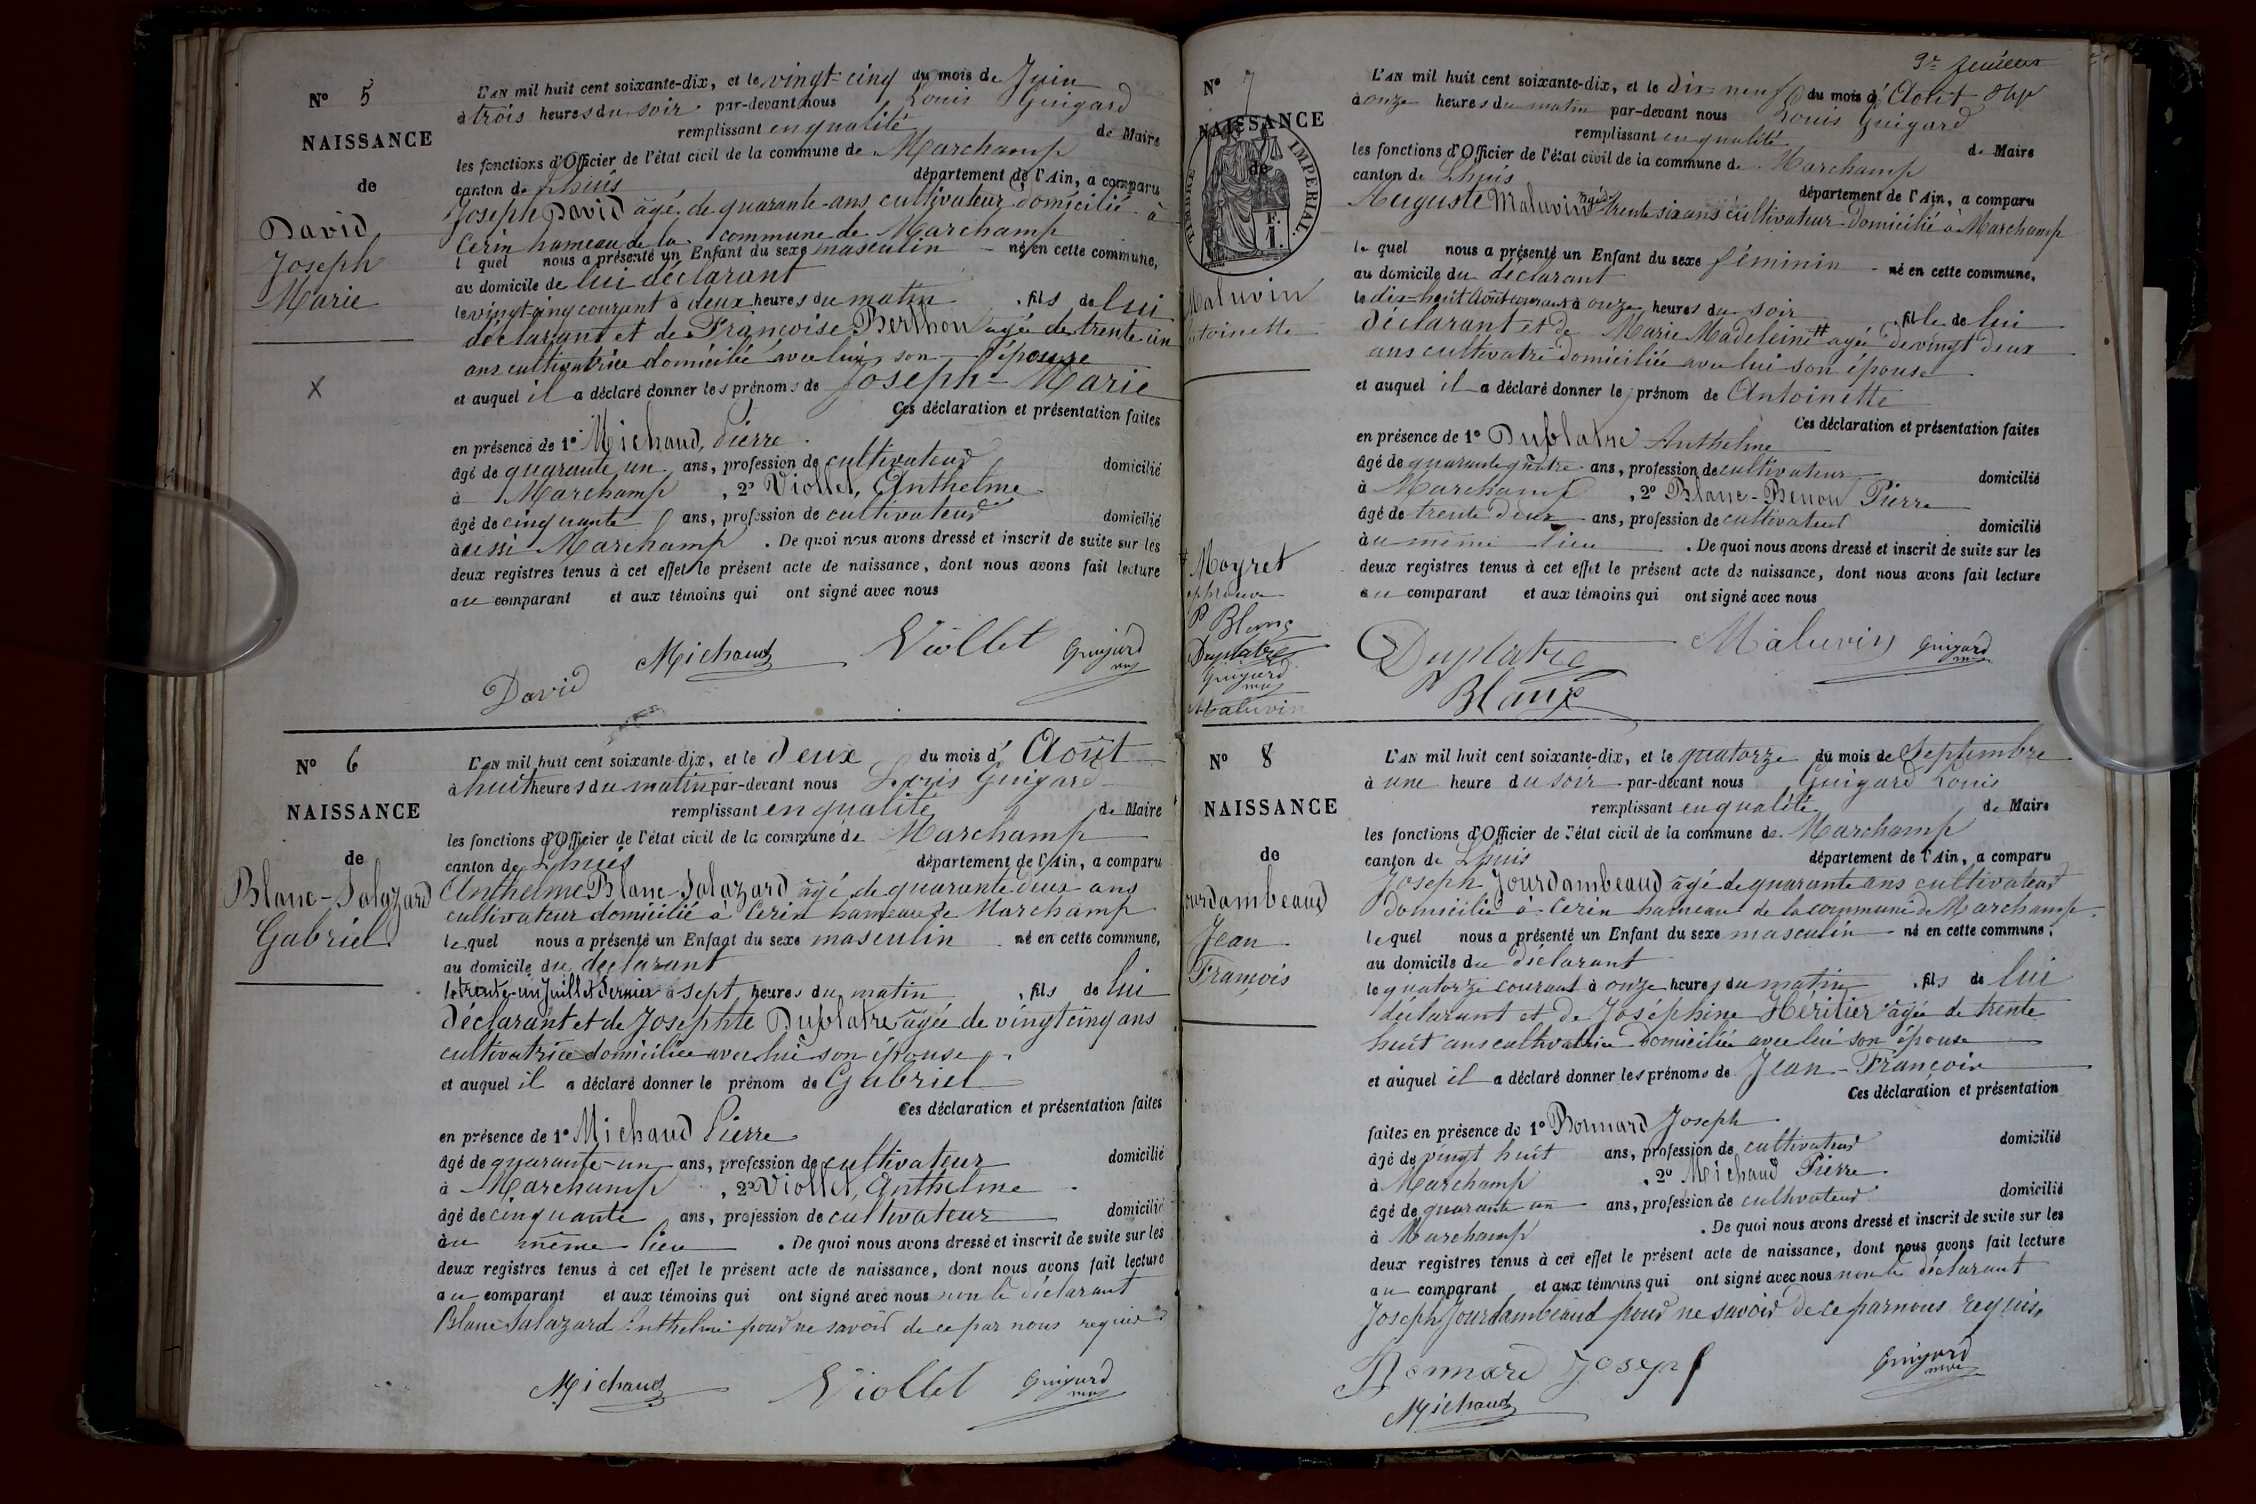 N° 5
NAISSANCE
de
David
Joseph
Marie
X
L'AN mil huit cent soixante-dix, et le vingt-cinq du mois de Juin
à trois heures du soir par-devant nous Louis Guigard
remplissant en qualité de Maire
les fonctions d'Officier de l'état civil de la commune de Marchamp
canton de Lhuis département de l'Ain, a comparu
Joseph David âgé de quarante ans cultivateur domicilié à
Cerin hameau de la commune de Marchamp
l quel nous a présenté un Enfant du sexe masculin né en cette commune,
au domicile de lui déclarant
le vingt-cinq courant à deux heures du matin, fils de lui
déclarant et de Françoise Berthon âgée de trente un
ans cultivatrice domicilié avec lui, son épouse
et auquel il a déclaré donner les prénoms de Joseph-Marie
Ces déclaration et présentation faites
en présence de 1° Michaud, Pierre
âgé de quarante un ans, profession de cultivateur domicilié
à Marchamp, 2° Viollet, Anthelme
âgé de cinquante ans, profession de cultivateur domicilié
aussi Marchamp. De quoi nous avons dressé et inscrit de suite sur les
deux registres tenus à cet effet le présent acte de naissance, dont nous avons fait lecture
au comparant et aux témoins qui ont signé avec nous
Michaud Viollet Guigard
David
N° 6
NAISSANCE
de
Blanc-Salazard
Gabriel
L'AN mil huit cent soixante-dix, et le deux du mois d' Août
à huit heures du matin par-devant nous Louis Guigard
remplissant en qualité de Maire
les fonctions d'Officier de l'état civil de la commune de Marchamp
canton de Lhuis département de l'Ain, a comparu
Anthelme Blanc-Salazard âgé de quarante deux ans
cultivateur domicilié à Cerin hameau de Marchamp
le quel nous a présenté un Enfant du sexe masculin né en cette commune,
au domicile du déclarant
le trente-un Juillet dernier à sept heures du matin, fils de lui
déclarant et de Josephte Duplatre âgée de vingt cinq ans
cultivatrice domiciliée avec lui son épouse
et auquel il a déclaré donner le prénom de Gabriel
Ces déclaration et présentation faites
en présence de 1° Michaud Pierre
âgé de quarante-un ans, profession de cultivateur domicilié
à Marchamp, 2° Viollet, Anthelme
âgé de cinquante ans, profession de cultivateur domicilié
au même lieu. De quoi nous avons dressé et inscrit de suite sur les
deux registres tenus à cet effet le présent acte de naissance, dont nous avons fait lecture
au comparant et aux témoins qui ont signé avec nous non le déclarant
Blanc Salazard Anthelme pour ne savoir de ce par nous requis
Michaud Viollet Guigard
N° 7
NAISSANCE
de
TIMBRE IMPERIAL
Maluvin
toinette
Moyret
approuvé
P Blanc
Duplatre
Guigard
Maluvin
L'AN mil huit cent soixante-dix, et le dix-neuf du mois d' Août
à onze heures du matin par-devant nous Louis Guigard
remplissant en qualité de Maire
les fonctions d'Officier de l'état civil de la commune de Marchamp
canton de Lhuis département de l'Ain, a comparu
Auguste Maluvin âgé trente six ans cultivateur domicilié à Marchamp
le quel nous a présenté un Enfant du sexe féminin né en cette commune,
au domicile du déclarant
le dix-huit Août courant à onze heures du soir, fille de lui
déclarant et de Marie Madeleine # âgée de vingt deux
ans cultivatrice domiciliée avec lui son épouse
et auquel il a déclaré donner le prénom de Antoinette
Ces déclaration et présentation faites
en présence de 1° Duplatre Anthelme
âgé de quarante quatre ans, profession de cultivateur domicilié
à Marchamp, 2° Blanc-Benon Pierre
âgé de trente deux ans, profession de cultivateur domicilié
au même lieu. De quoi nous avons dressé et inscrit de suite sur les
deux registres tenus à cet effet le présent acte de naissance, dont nous avons fait lecture
au comparant et aux témoins qui ont signé avec nous
Duplatre Maluvin Guigard
P Blanc
N° 8
NAISSANCE
de
ourdambeaud
Jean
François
L'AN mil huit cent soixante-dix, et le quatorze du mois de Septembre
à une heure du soir par-devant nous Guigard Louis
remplissant en qualité de Maire
les fonctions d'Officier de l'état civil de la commune de Marchamp
canton de Lhuis département de l'Ain, a comparu
Joseph Jourdambeaud âgé de quarante ans cultivateur
domicilié à Cerin hameau de la commune de Marchamp
le quel nous a présenté un Enfant du sexe masculin né en cette commune,
au domicile du déclarant
le quatorze courant à onze heures du matin, fils de lui
déclarant et de Joséphine Héritier âgée de trente
huit ans cultivatrice domiciliée avec lui son épouse
et auquel il a déclaré donner les prénoms de Jean-François
Ces déclaration et présentation
faites en présence de 1° Bonnard Joseph
âgé de vingt huit ans, profession de cultivateur domicilié
à Marchamp, 2° Michaud Pierre
âgé de quarante un ans, profession de cultivateur domicilié
à Marchamp. De quoi nous avons dressé et inscrit de suite sur les
deux registres tenus à cet effet le présent acte de naissance, dont nous avons fait lecture
au comparant et aux témoins qui ont signé avec nous non le déclarant
Joseph Jourdambeaud pour ne savoir de ce par nous requis
Bonnard Joseph Guigard
Michaud